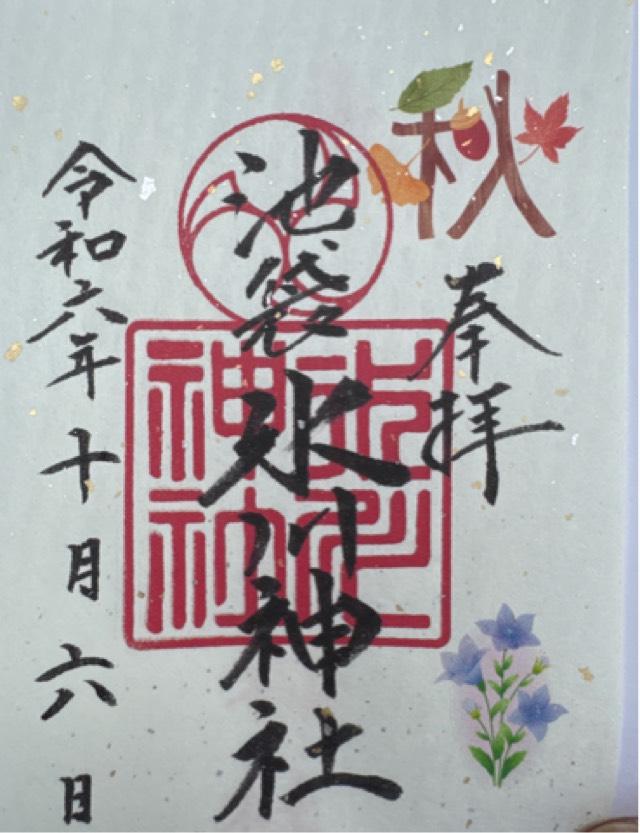 秋
奉拝
池袋氷川神社
令和六年十月六日